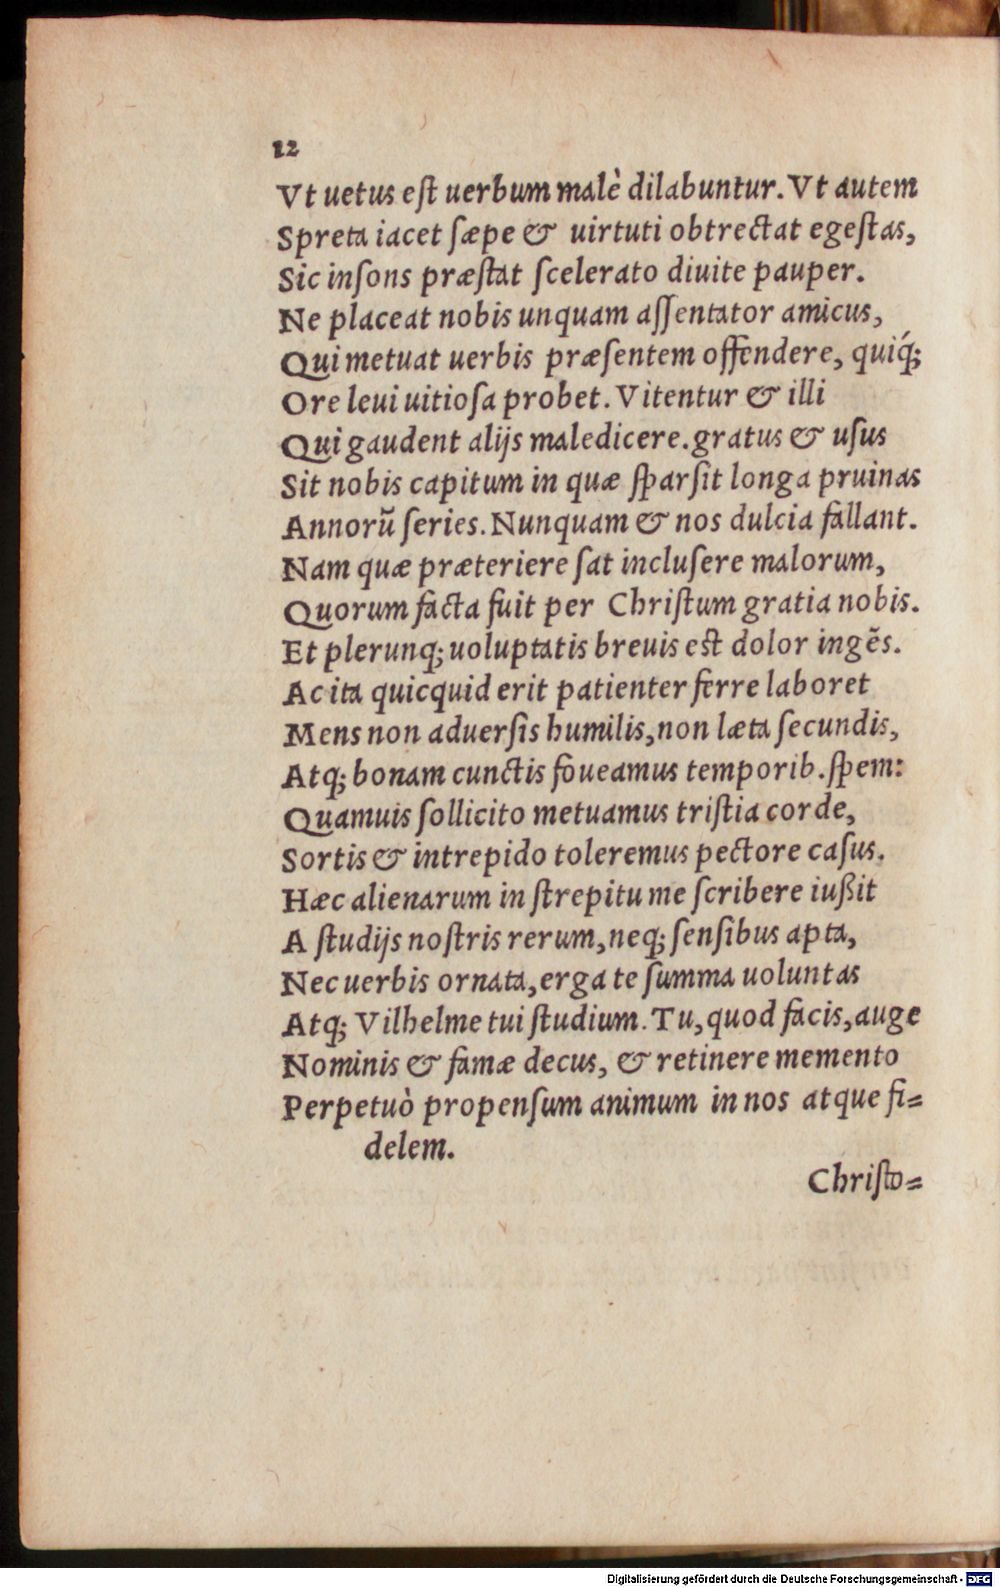 12
Vt uetus est uerbum malè dilabuntur. Vt autem
Spreta iacet sæpe & uirtuti obtrectat egestas,
Sic insons præstat scelerato diuite pauper.
Ne placeat nobis unquam assentator amicus,
Qui metuat uerbis præsentem offendere, quiq́;
Ore leui uitiosa probet. Vitentur & illi
Qui gaudent alijs maledicere. gratus & usus
Sit nobis capitum in quæ sparsit longa pruinas
Annorũ series. Nunquam & nos dulcia fallant.
Nam quæ præteriere sat inclusere malorum,
Quorum facta fuit per Christum gratia nobis.
Et plerunq; uoluptatis breuis est dolor ingẽs.
Ac ita quicquid erit patienter ferre laboret
Mens non aduersis humilis, non læta secundis,
Atq; bonam cunctis foueamus temporib. spem:
Quamuis sollicito metuamus tristia corde,
Sortis & intrepido toleremus pectore casus.
Hæc alienarum in strepitu me scribere iußit
A studijs nostris rerum, neq; sensibus apta,
Nec uerbis ornata, erga te summa uoluntas
Atq; Vilhelme tui studium. Tu, quod facis, auge
Nominis & famæ decus, & retinere memento
Perpetuò propensum animum in nos atque fi=
delem.
Christo=
Digitalisierung gefördert durch die Deutsche Forschungsgemeinschaft - DFG